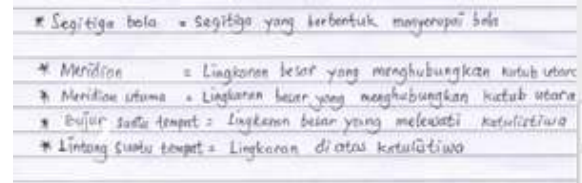 * Segitiga bola = Segitiga yang berbentuk menyerupai bola
* Meridian = Lingkaran besar yang menghubungkan kutub utara
* Meridian utama = Lingkaran besar yang menghubungkan kutub utara
* Bujur suatu tempat = Lingkaran besar yang melewati katulistiwa
* Lintang suatu tempat = Lingkaran diatas katulistiwa